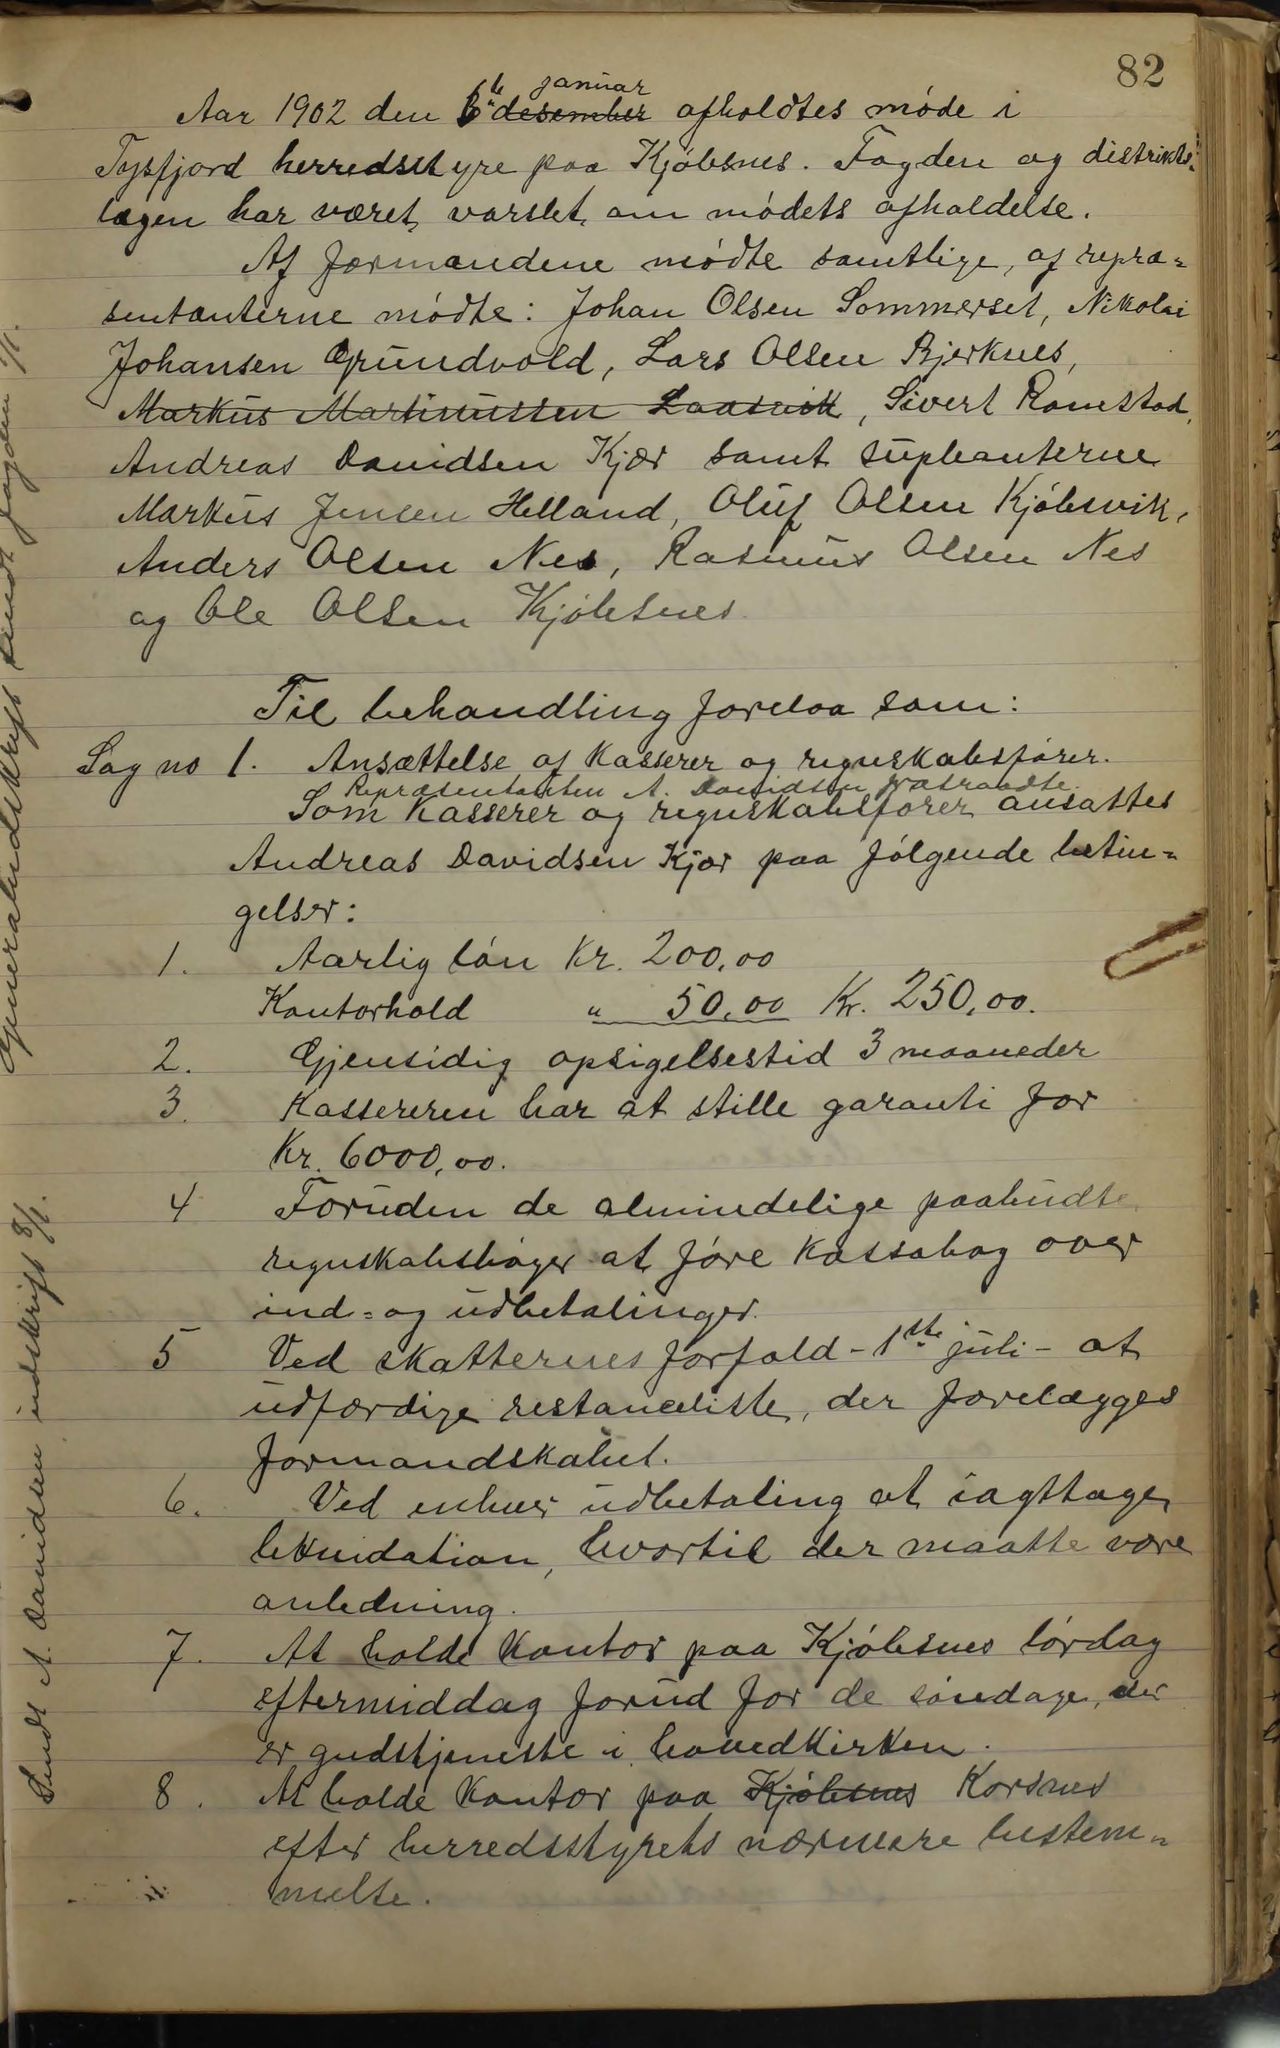 82
Aar 1902 den 6te desember januar afholdtes møde i
Tysfjord herredsstyre paa Kjøbsnes. Fogden og distrikts-
lægen har været varslet om mødets afholdelse.
Af formændene mødte samtlige, af repræ-
sentanterne mødte: Johan Olsen Sommerset, Nikolai
Johansen Grundvold, Lars Olsen Bjerknes,
Markus Martinussen Laasvik, Sivert Ramstad,
Andreas Davidsen Kjær samt supleanterne
Markus Jensen Helland, Oluf Olsen Kjøbsvik,
Anders Olsen Nes, Rasmus Olsen Nes
og Ole Olsen Kjøbsnes.
Til behandling forelaa som:
Sag no 1. Ansættelse af Kasserer og regnskabsfører.
Repræsentanten A. Davidsen fratraadte.
Som Kasserer og regnskabsfører ansattes
Andreas Davidsen Kjær paa følgende betin-
gelser:
1. Aarlig løn Kr. 200,00
Kontorhold " 50,00 Kr. 250,00.
2. Gjensidig opsigelsestid 3 maaneder
3. Kassereren har at stille garanti for
Kr. 6000,00.
4 Foruden de almindelige paabudte
regnskabsbøger at føre Kassabog over
ind- og udbetalinger.
5 Ved skatternes forfald - 1ste juli - at
udfærdige restanceliste, der forelægges
formandskabet.
6. Ved enhver udbetaling at iagttage
likvidation, hvortil der maatte være
anledning.
7. At holde Kontor paa Kjøbsnes lørdag
eftermiddag forud for de søndage, der
er gudstjeneste i hovedkirken.
8. At holde Kontor paa Kjøbsnes Korsnes
efter herredsstyrets nærmere bestem-
melse.
Sendt A. Davidsen indskrift 8/1.
Generalindskrift sendt fogden